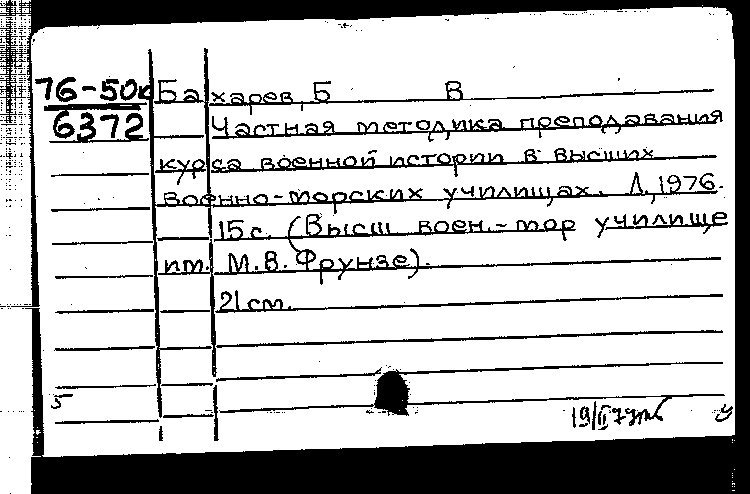 76-50к Бахарев, Б В
6372 Частная методика преподавания
курса военной истории в высших
военно-морских училищах. Л., 1976.
15 с. (Высш воен.-мор училище
им. М.В. Фрунзе).
21 см.
5
19/II 77